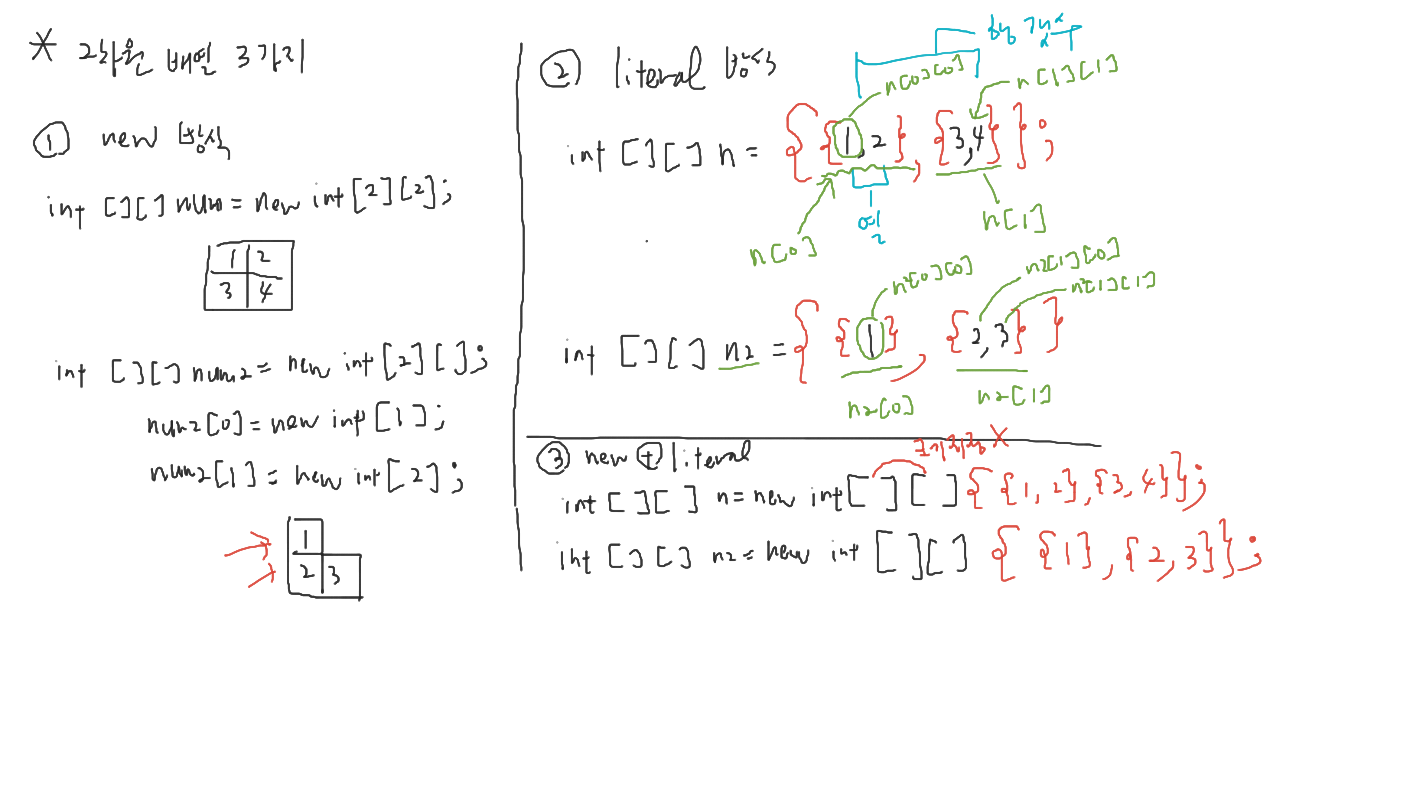 * 2차원 배열 3가지
① new 방식
int [][] num = new int[2][2];
1 2
3 4
int [][] num2 = new int[2][];
num2[0] = new int[1];
num2[1] = new int[2];
1
2 3
② literal 방식
행 개수
n[0][0]
n[1][1]
int [][] n = { {1,2}, {3,4} };
n[0]
열
2
n[1]
n2[0][0]
n2[1][0]
n2[1][1]
int [][] n2 = { {1}, {2,3} }
n2[0]
n2[1]
③ new ⊕ literal
크기지정 X
int [][] n = new int[][]{ {1,2},{3,4}};
int [][] n2 = new int [][] { {1},{2,3}};